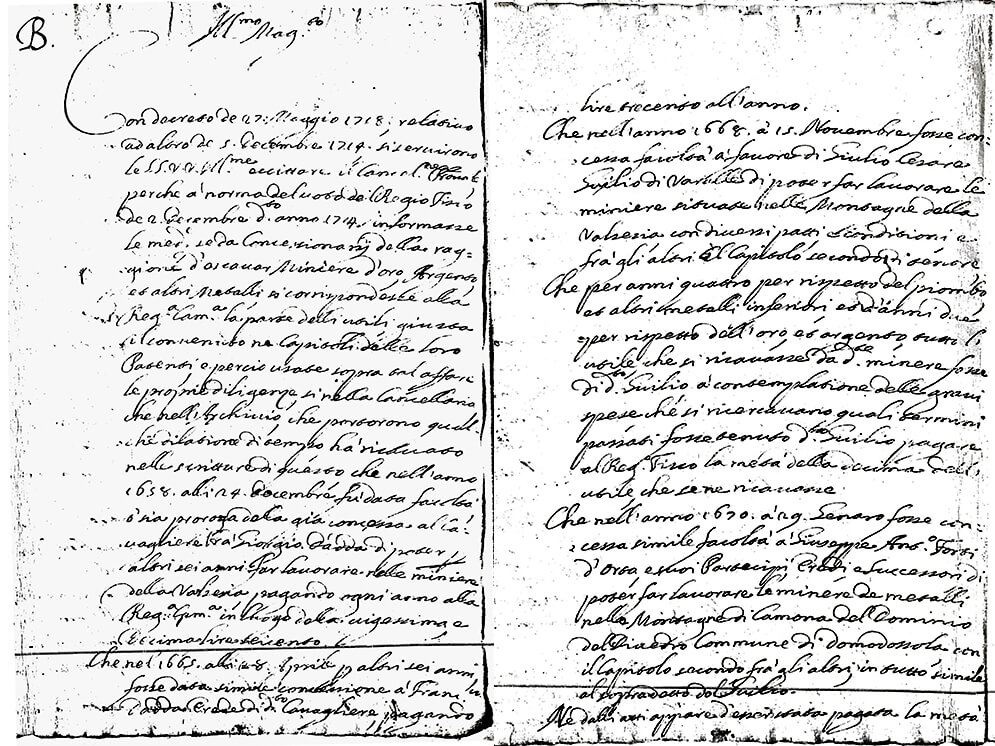 B.
Ill.mo Mag.to
Con decreto de 27: Maggio 1718: relativo
ad altro de 5. decembre 1714. si servirono
le SS.VV. Ill.me eccittare il Cancel.re
perche à norma del voto del Regio Fisco
de 2. decembre d.o anno 1714, informasse
le med.e se da Concessionarij della rag-
gione d'escavar Miniere d'oro, Argento
et altri Metalli si corrispondesse alla
Reg.a Cam.a la parte delli utili giusta
il convenuto ne Capitoli delle loro
Patenti e perciò usate sopra tal affare
le proprie diligenze, si nella Cancellaria
che nell'Archivio, che portorono qual
che dilatione di tempo hà rittrovato
nelle scritture di questo che nell'anno
1658. alli 24. decembre fù data facoltà
ò sia proroga della già concessa al Ca-
vagliere frà Giorgio d'adda di poter p
altri sei anni far lavorare nelle miniere
della Valsesia, pagando ogni anno alla
Reg.a Cam.a in luogo della vigessima, e
decima lire seicento
Che nel 1665. alli 28. Aprile p altri sei anni
fosse data simile concessione à Fran.co
d'adda Erede di d.o Cavagliere pagando
lire trecento all'anno.
Che nell'anno 1668. à 15. Novembre fosse con-
cessa facoltà à favore di Giulio Cesare
di Varallo di poter far lavorare le
miniere situate nelle Montagne della
Valsesia con diversi patti e conditioni e
frà gli altri il Capitolo secondo di tenore
Che per anni quattro per rispetto del piombo
et altri metalli inferiori et d'anni due
per rispetto dell'oro, et argento tutto l'
utile che si ricavasse da d.te minere fosse
di d.to à contemplatione delle gravi
spese che si ricercavano quali termini
passati fosse tenuto d.to pagare
al Reg.o Fisco la metà della decima dell'
utile che se ne ricavasse
Che nell'anno 1670. à 29. Genaro fosse con-
cessa simile facoltà à Giuseppe Ant.o
d'Orta e suoi Partecipi, Eredi, e Successori di
poter far lavorare le minere de metalli
nelle Montagne di Camona del Dominio
del Commune di domodossola con
il Capitolo secondo frà gli altri, in tutto simile
al sopradetto del
Ne dalli atti appare d'esser stata pagata la metà